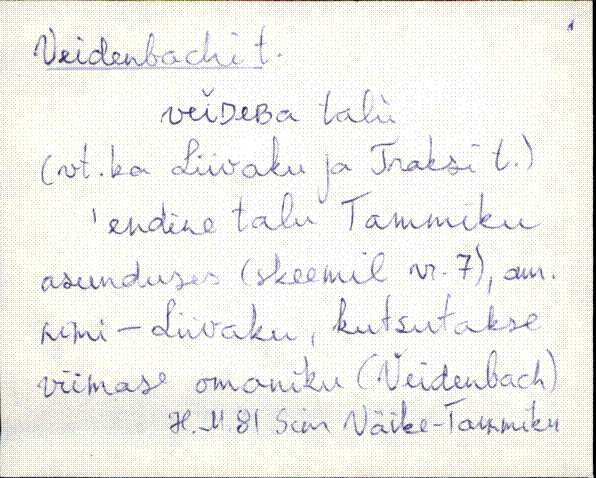 Veidenbachi t.
veiDeBa talu
(vt. ka Liivaku ja Traksi t.)
'endine talu Tammiku
asunduses (skeemil nr. 7), am.
nimi – Liivaku, kutsutakse
viimase omaniku (Veidenbach)
H.M 81 Sim Väike-Tammiku